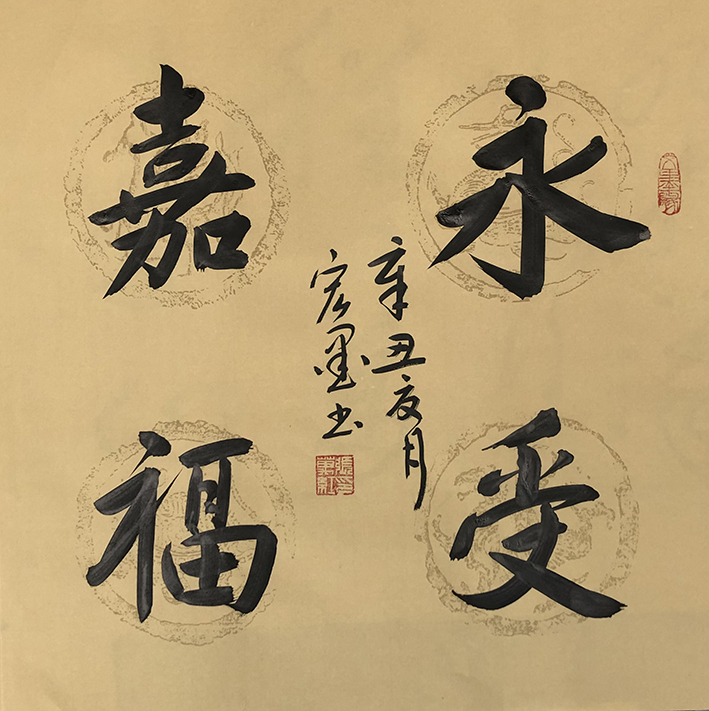 永受
嘉福
辛丑亥月
宏墨书